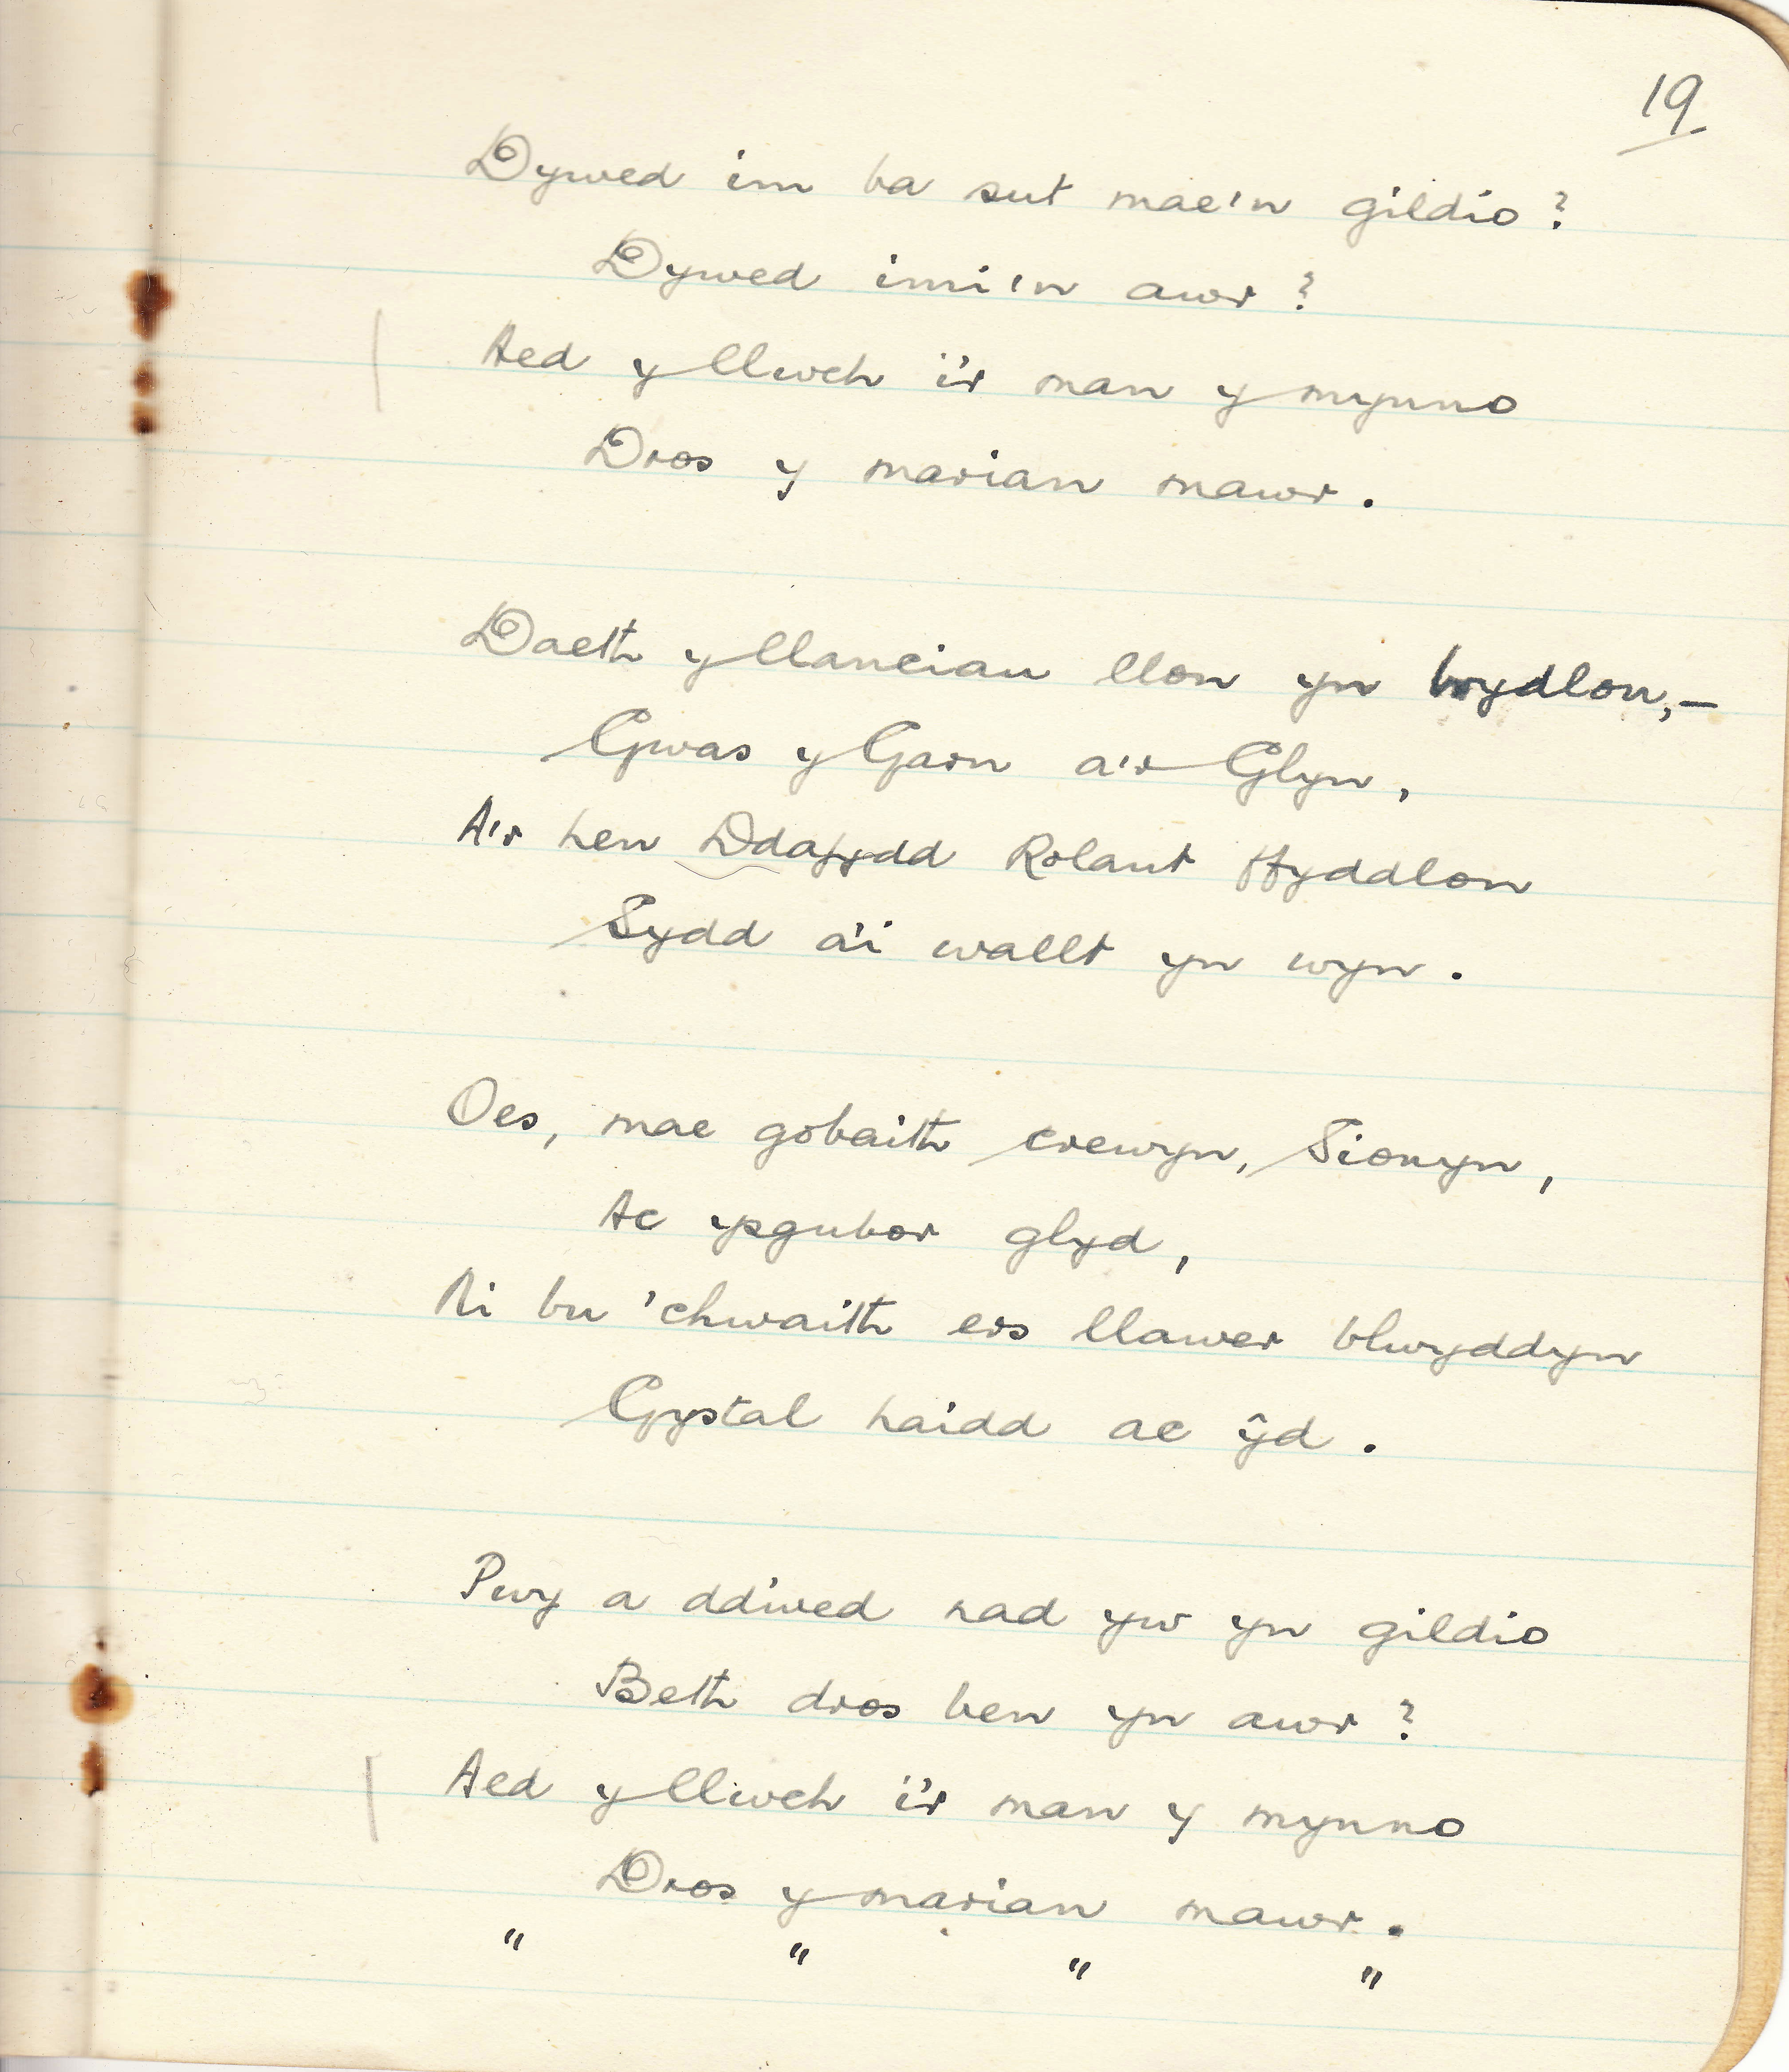 19
Dywed im ba sut mae'n gildio?
Dywed imi'n awr?
Aed y llwch i'r man y mynno
Dros y marian mawr.
Daeth y llanciau llon yn brydlon,—
Gwas y Garn a'r Glyn,
A'r hen Ddafydd Rolant ffyddlon
Sydd a'i wallt yn wyn.
Oes, mae gobaith crewyn, Sionyn,
Ac ysgubor glyd,
Ni bu 'chwaith ers llawer blwyddyn
Gystal haidd ac ŷd.
Pwy a ddwed nad yw yn gildio
Beth dros ben yn awr?
Aed y llwch i'r man y mynno
Dros y marian mawr.
" " " "